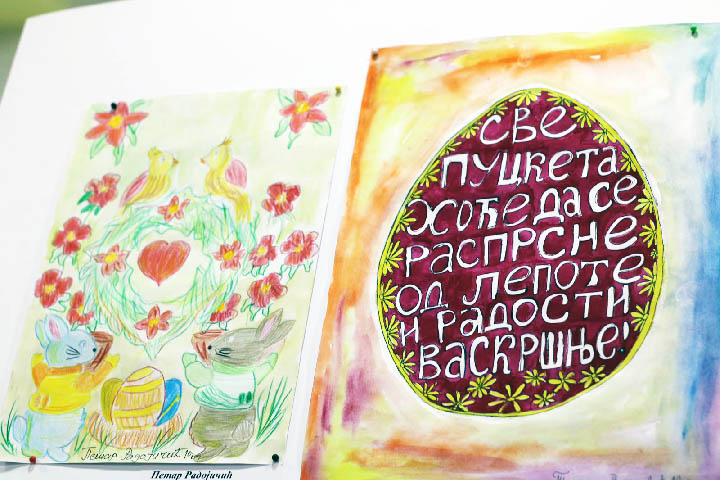 Петар Радојичић
Петар Радојичић
СВЕ
ПУЦКЕТА
ХОЋЕ ДА СЕ
РАСПРСНЕ
ОД ЛЕПОТЕ
И РАДОСТИ
ВАСКРШЊЕ!